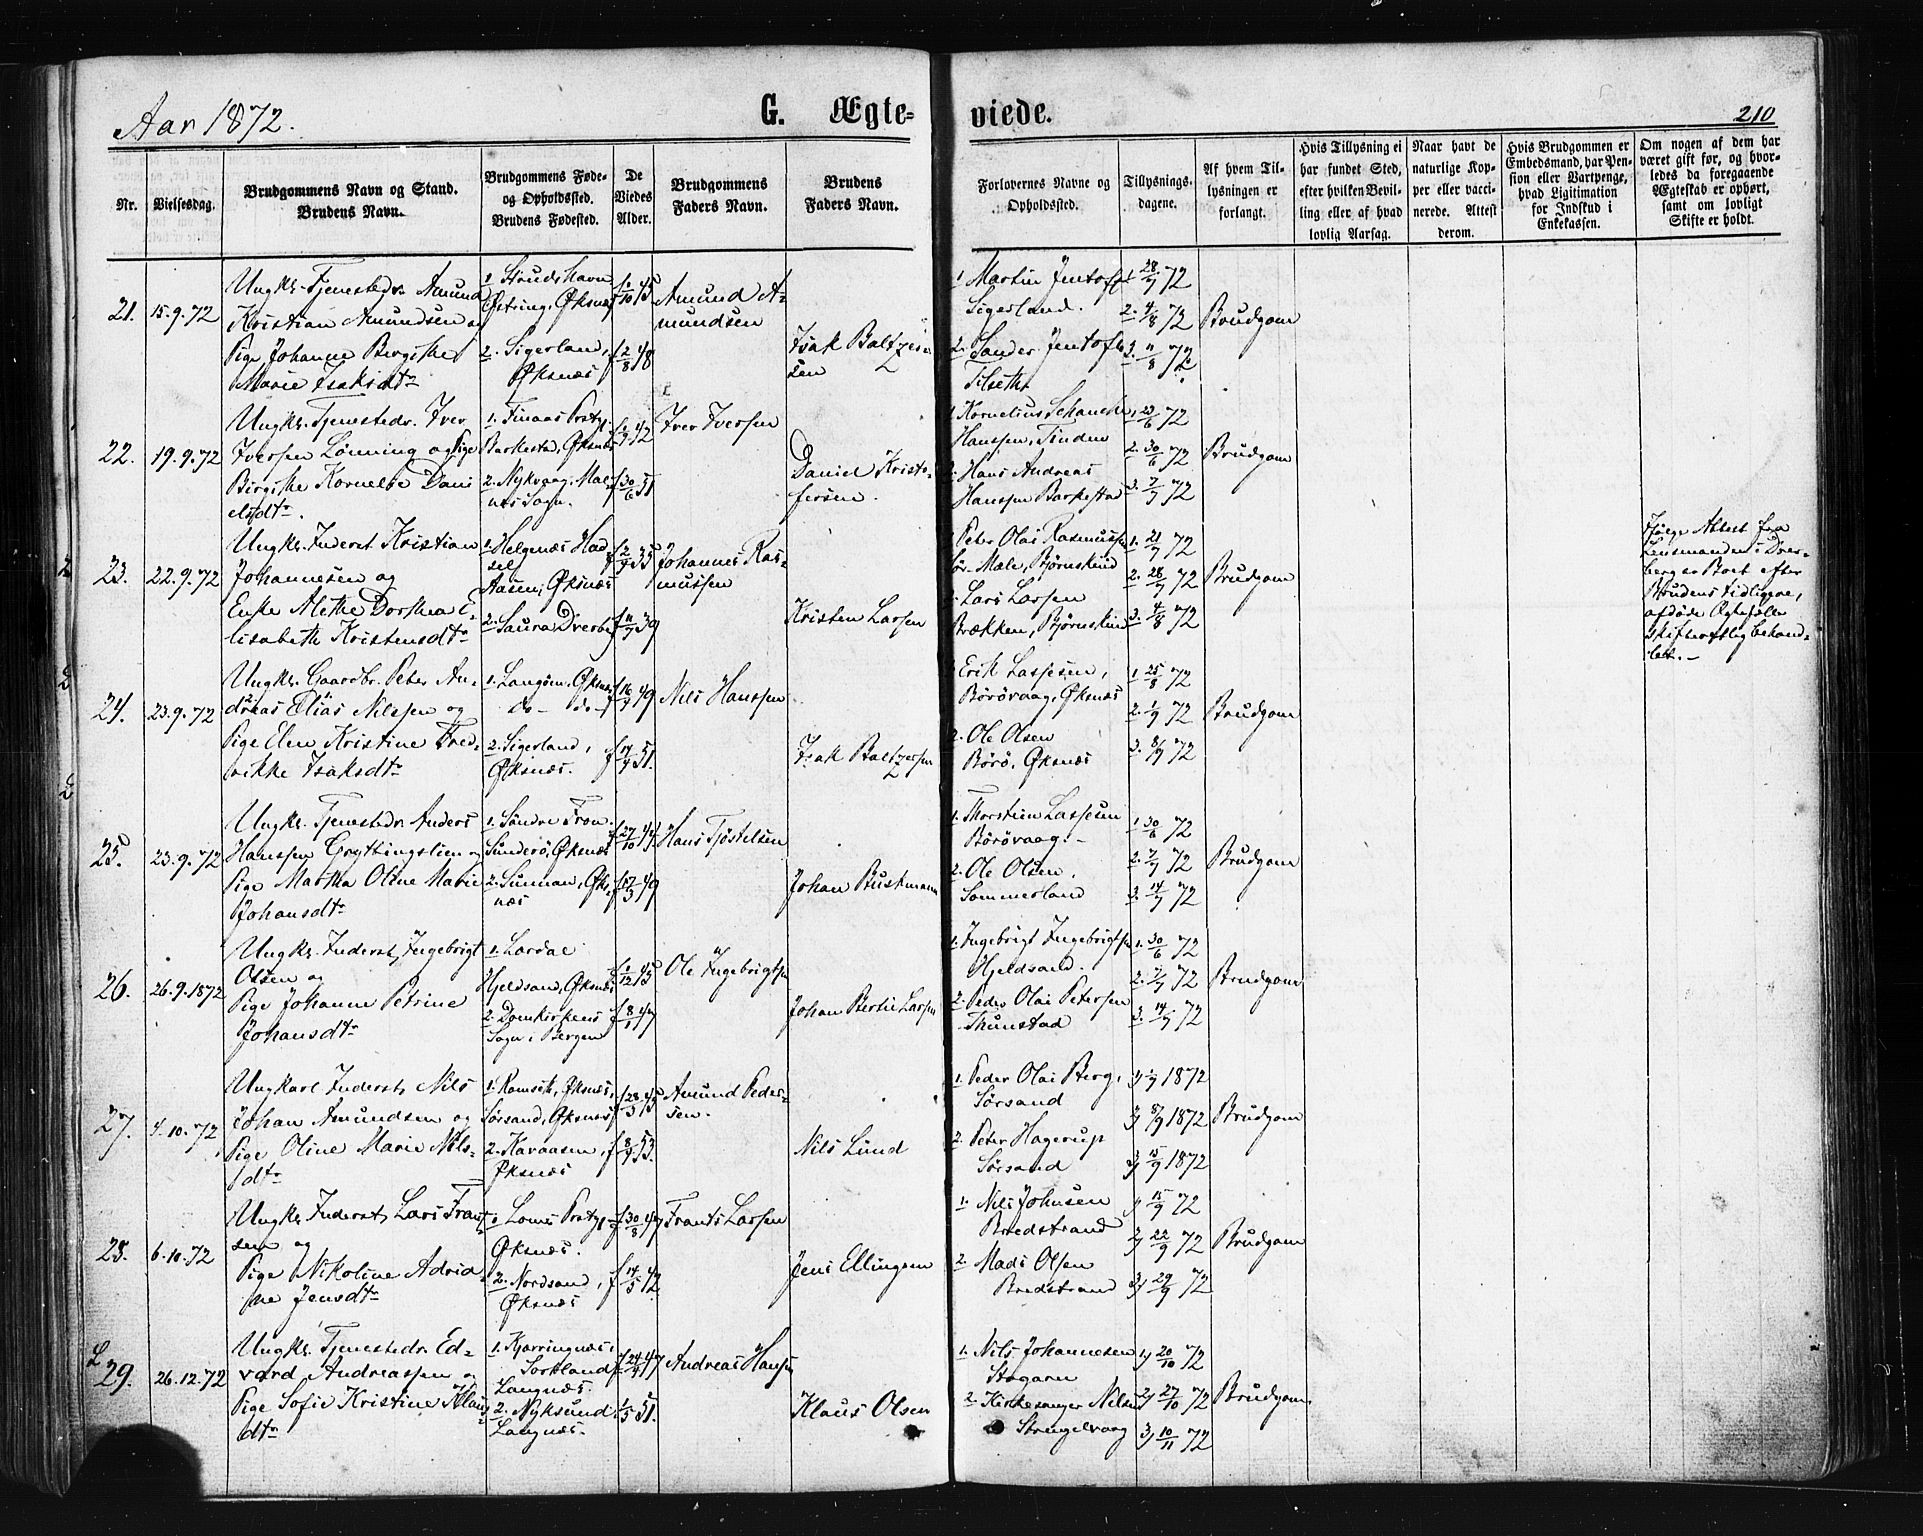 Aar 1872.
G. Ægte-
viede.
210
Nr.
Vielsesdag.
Brudgommens Navn og Stand.
Brudens Navn.
Brudgommens Føde-
og Opholdssted.
Brudens Fødested.
De
Viedes
Alder.
Brudgommens
Faders Navn.
Brudens
Faders Navn.
Forlovernes Navne og
Opholdssted.
Tillysnings-
dagene.
Af hvem Til-
lysningen er
forlangt.
Hvis Tillysning ei
har fundet Sted,
efter hvilken Bevil-
ling eller af hvad
lovlig Aarsag.
Naar havt de
naturlige Kop-
per eller vacci-
nerede. Attest
derom.
Hvis Brudgommen er
Embedsmand, har Pen-
sion eller Vartpenge,
hvad Ligitimation
for Indskud i
Enkekassen.
Om nogen af dem har
været gift før, og hvor-
ledes da foregaaende
Ægteskab er ophørt,
samt om lovligt
Skifte er holdt.
21.
15.9.72
Ungkr. Tjenestedr. Amund
Kristian Amundsen og
Pige Johanne Bergithe
Marie Isaksdtr
1. Skudshavn
Østring, Øksnæs
2. Sigerland,
Øksnæs
f 1/10 45
f 2/8 48
Amund A-
mundsen
Isak Baltzer-
sen
1. Martin Jentoft
Sigerland.
2. Sander Jentoft
Tilseth
1. 28/7 72
2. 4/8 72
3. 11/8 72
Brudgom
22.
19.9.72
Ungkr. Tjenestedr. Iver
Iversen Lønning og Pige
Birgithe Kornelie Dani
elsdtr.
1. Finaas Prstgj.
Barkestad, Øksnæs
2. Nykvaag, Mal-
næs Sogn.
f 1/9 42
f 30/6 51
Iver Iversen
Daniel Kristo-
fersen.
1. Kornelius Schanche
Hanssen, Tinden
2. Hans Andreas
Hanssen Barkestad
1. 23/6 72
2. 30/6 72
3. 7/7 72
Brudgom
23.
22.9.72
Ungkr. Inderst Kristian
Johannesen og
Enke Alethe Dorthea E-
lisabeth Kristensdtr
1. Helgenæs Had-
sel
Aasen, Øksnæs
2. Saura Dverberg
f 2/9 35
f 11/7 39
Johannes Ras-
mussen
Kristen Larsen
Peter Olai Rasmussen
Sør-Mele, Bjørnskind
2. Lars Larsen
Brækken, Bjørnskind
1. 21/7 72
2. 28/7 72
3. 4/8 72
Brudgom
Ifølge Attest fra
Lensmanden i Dver-
berg er Boet efter
Brudens tidligere,
afdøde Ægtefælle
skifteretlig behand-
let. -
24.
23.9.72
Ungkr. Gaardbr. Peter An-
dreas Elias Nilssen og
Pige Elen Kristine Fred-
rikke Isaksdtr
1. Langøen, Øksnæs
do - do -
2. Sigerland,
Øksnæs.
f 16/9 49
f 14/4 51.
Nils Hanssen
Isak Baltzersen
Erik Lassesen,
Børøvaag, Øksnæs
2. Ole Olsen
Børø, Øksnæs
1. 25/8 72
2. 1/9 72
3. 8/9 72
Brudgom
25.
23.9.72
Ungkr. Tjenestedr. Anders
Hanssen Gryttingslien og
Pige Martha Oline Marie
Johansdtr
1. Søndre Fron.
Sunderø, Øksnæs
2. Sunnan, Øks-
næs
f 27/10 44
f 17/3 49
Hans Tjøstelsen
Johan Bustmann
1. Thorstein Lassesen
Børøvaag. -
2. Ole Olsen.
Sommerland
1. 30/6 72
2. 7/7 72
3. 14/7 72
Brudgom
26.
26.9.1872
Ungkr. Inderst, Ingebrigt
Olsen og
Pige Johanne Petrine
Johansdtr
1. Lardal
Hjeldsand, Øksnæs
2. Domkirkens
Sogn i Bergen
f 1/12 45
f 8/1 47
Ole Ingebrigtsen
Johan Bertin Larsen
1. Ingebrigt Ingebrigtsen
Hjeldsand.
2. Peder Olai Petersen
Thunstad
1. 30/6 72
2. 7/7 72
3. 14/7 72
Brudgom
27.
4.10.72
Ungkarl Inderst, Nils
Johan Amundsen og
Pige Oline Marie Nils-
dtr
1. Romsek, Øksnæs,
Sørsand, Øksnæs
2. Karaasen,
Øksnæs
f 28/3 45
f 8/9 53.
Amund Peder-
sen.
Nils Lund
1. Peder Olai Berg,
Sørsand
2. Peter Hagerup
Sørsand
1) 1/9 1872
2) 8/9 1872
3) 15/9 1872
Brudgom
28.
6.10.72
Ungkr. Inderst, Lars Frant-
sen og
Pige Nikoline Adria-
ne Jensdtr
1. Lomes Prstgj.
Øksnæs.
2. Nordsand,
Øksnæs
f 30/8 47
f 14/5 42
Frants Larsen
Jens Ellingsen
1. Nils Johnsen
Bredstrand
2. Mads Olsen
Bredstrand
1) 15/9 72
2) 22/9 72
3) 29/9 72
Brudgom
29.
26.12.72
Ungkr. Tjenestedr. Ed-
vard Andreassen og
Pige Sofie Kristine Klaus-
dtr
1. Kjørringnæs,
Sortland
Langnæs.
2. Nyksund.
Langnæs.
f 24/4 47
1/5 51.
Andreas Hansen
Klaus Olsen
1. Nils Johannesen
Skogøen
2. Kirkesanger Nilsen
Strengelvaag
1) 20/10 72
2) 27/10 72
3) 10/11 72
Brudgom.